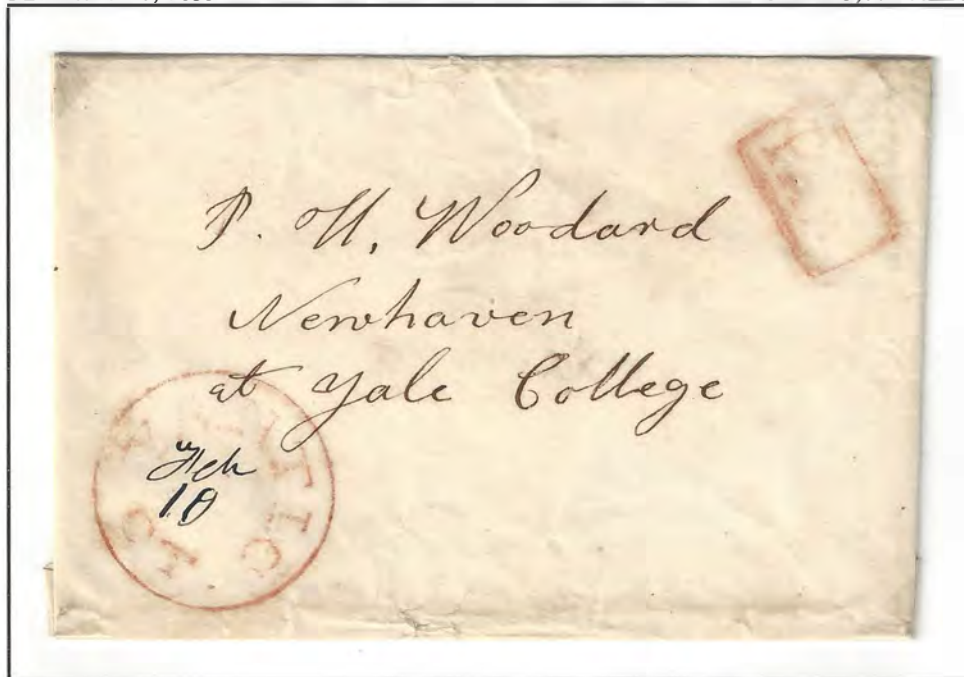 P. H. Woodard
Newhaven
at Yale College
Feb
10